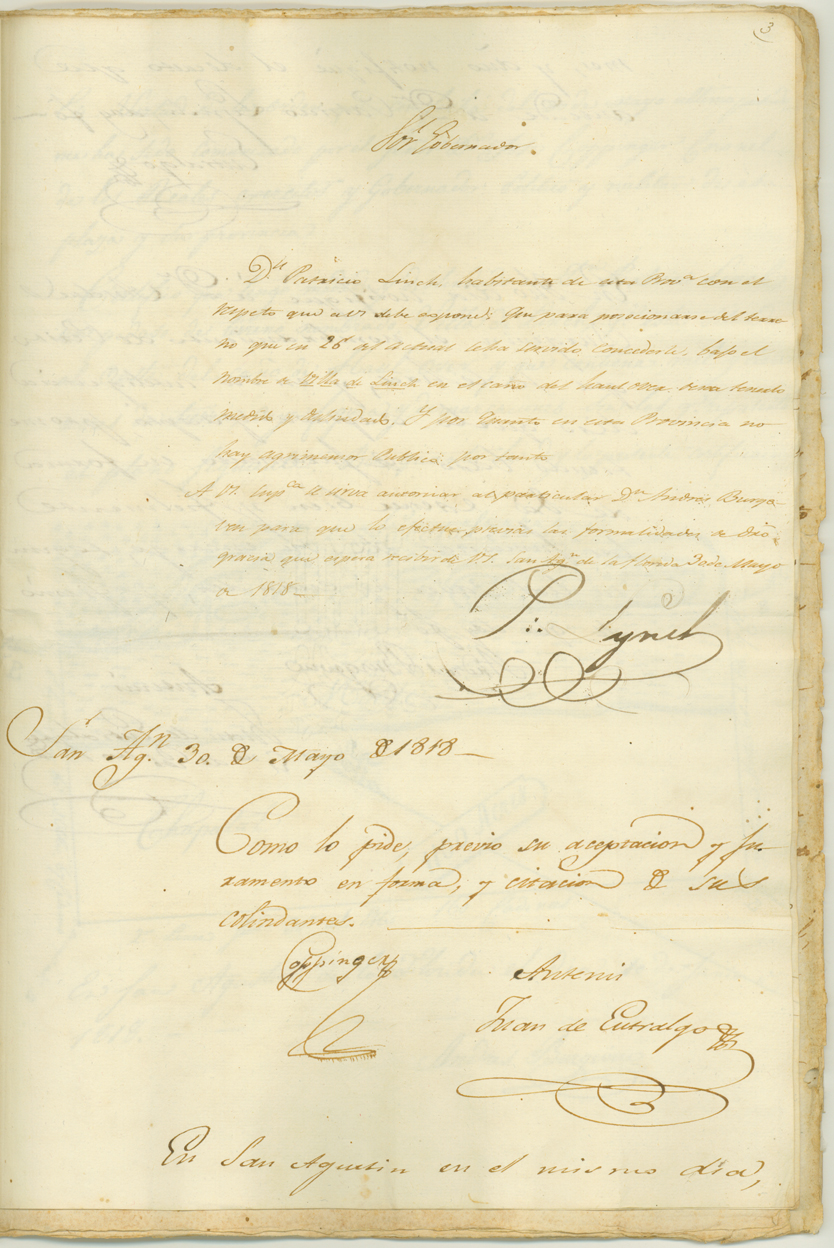 3
Sor. Gobernador.
Dn. Patricio Linch, habitante de esta Prova. con el
respeto que a VS debe expone: Que para posecionarse del terre
no que en 26 del actual se ha servido concederle, bajo el
nombre de Villa de Linch en el caño del haulover sea
medido y deslindado, Y por quanto en esta Provincia no
hay agrimensor Publico por tanto
A VS. Supca. se sirva autorizar al particular Dn. Andres Burge
ven para que lo efectue previas las formalidades de dro.
gracia que espera recibir de VS. San Agn. de la florida 30 de Mayo
de 1818
P: Lynch
San Agn. 30. de Mayo de 1818
Como lo pide, previo su aceptacion y ju-
ramento en forma, y citacion de sus
colindantes.
Coppinger
Antemi
Juan de Entralgo
En San Agustin en el mismo dia,